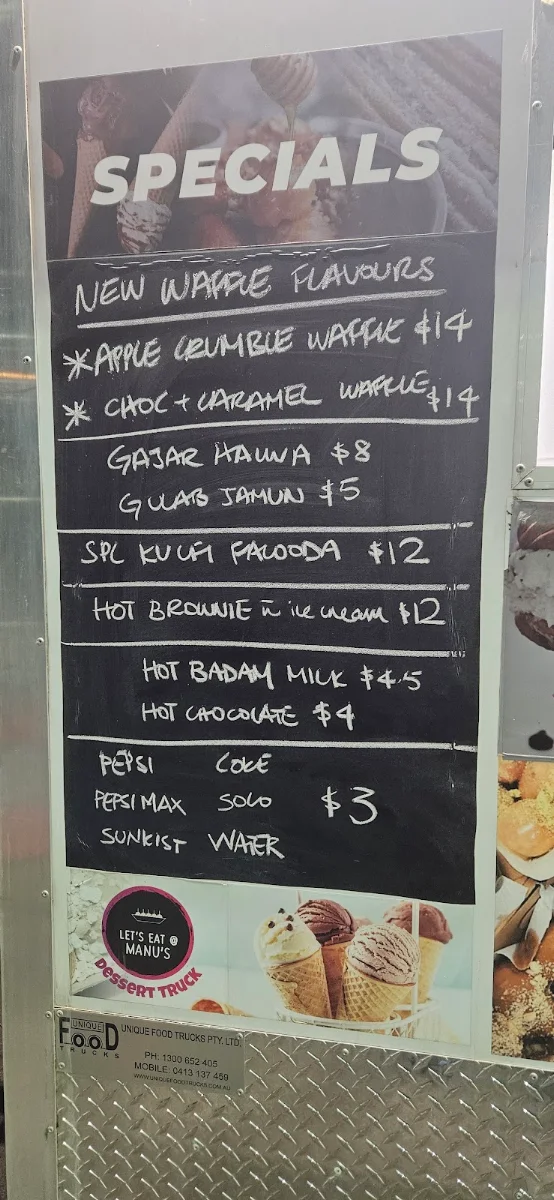 SPECIALS
NEW WAFFLE FLAVOURS
* APPLE CRUMBLE WAFFLE $14
* CHOC + CARAMEL WAFFLE $14
GAJAR HALWA $8
GULAB JAMUN $5
SPL KULFI FALOODA $12
HOT BROWNIE w ice cream $12
HOT BADAM MILK $4.5
HOT CHOCOLATE $4
PEPSI COKE
PEPSI MAX SOLO $3
SUNKIST WATER
LET'S EAT @
MANU'S
DESSERT TRUCK
UNIQUE
FOOD
TRUCKS
UNIQUE FOOD TRUCKS PTY. LTD.
PH: 1300 652 405
MOBILE: 0413 137 459
WWW.UNIQUEFOODTRUCKS.COM.AU